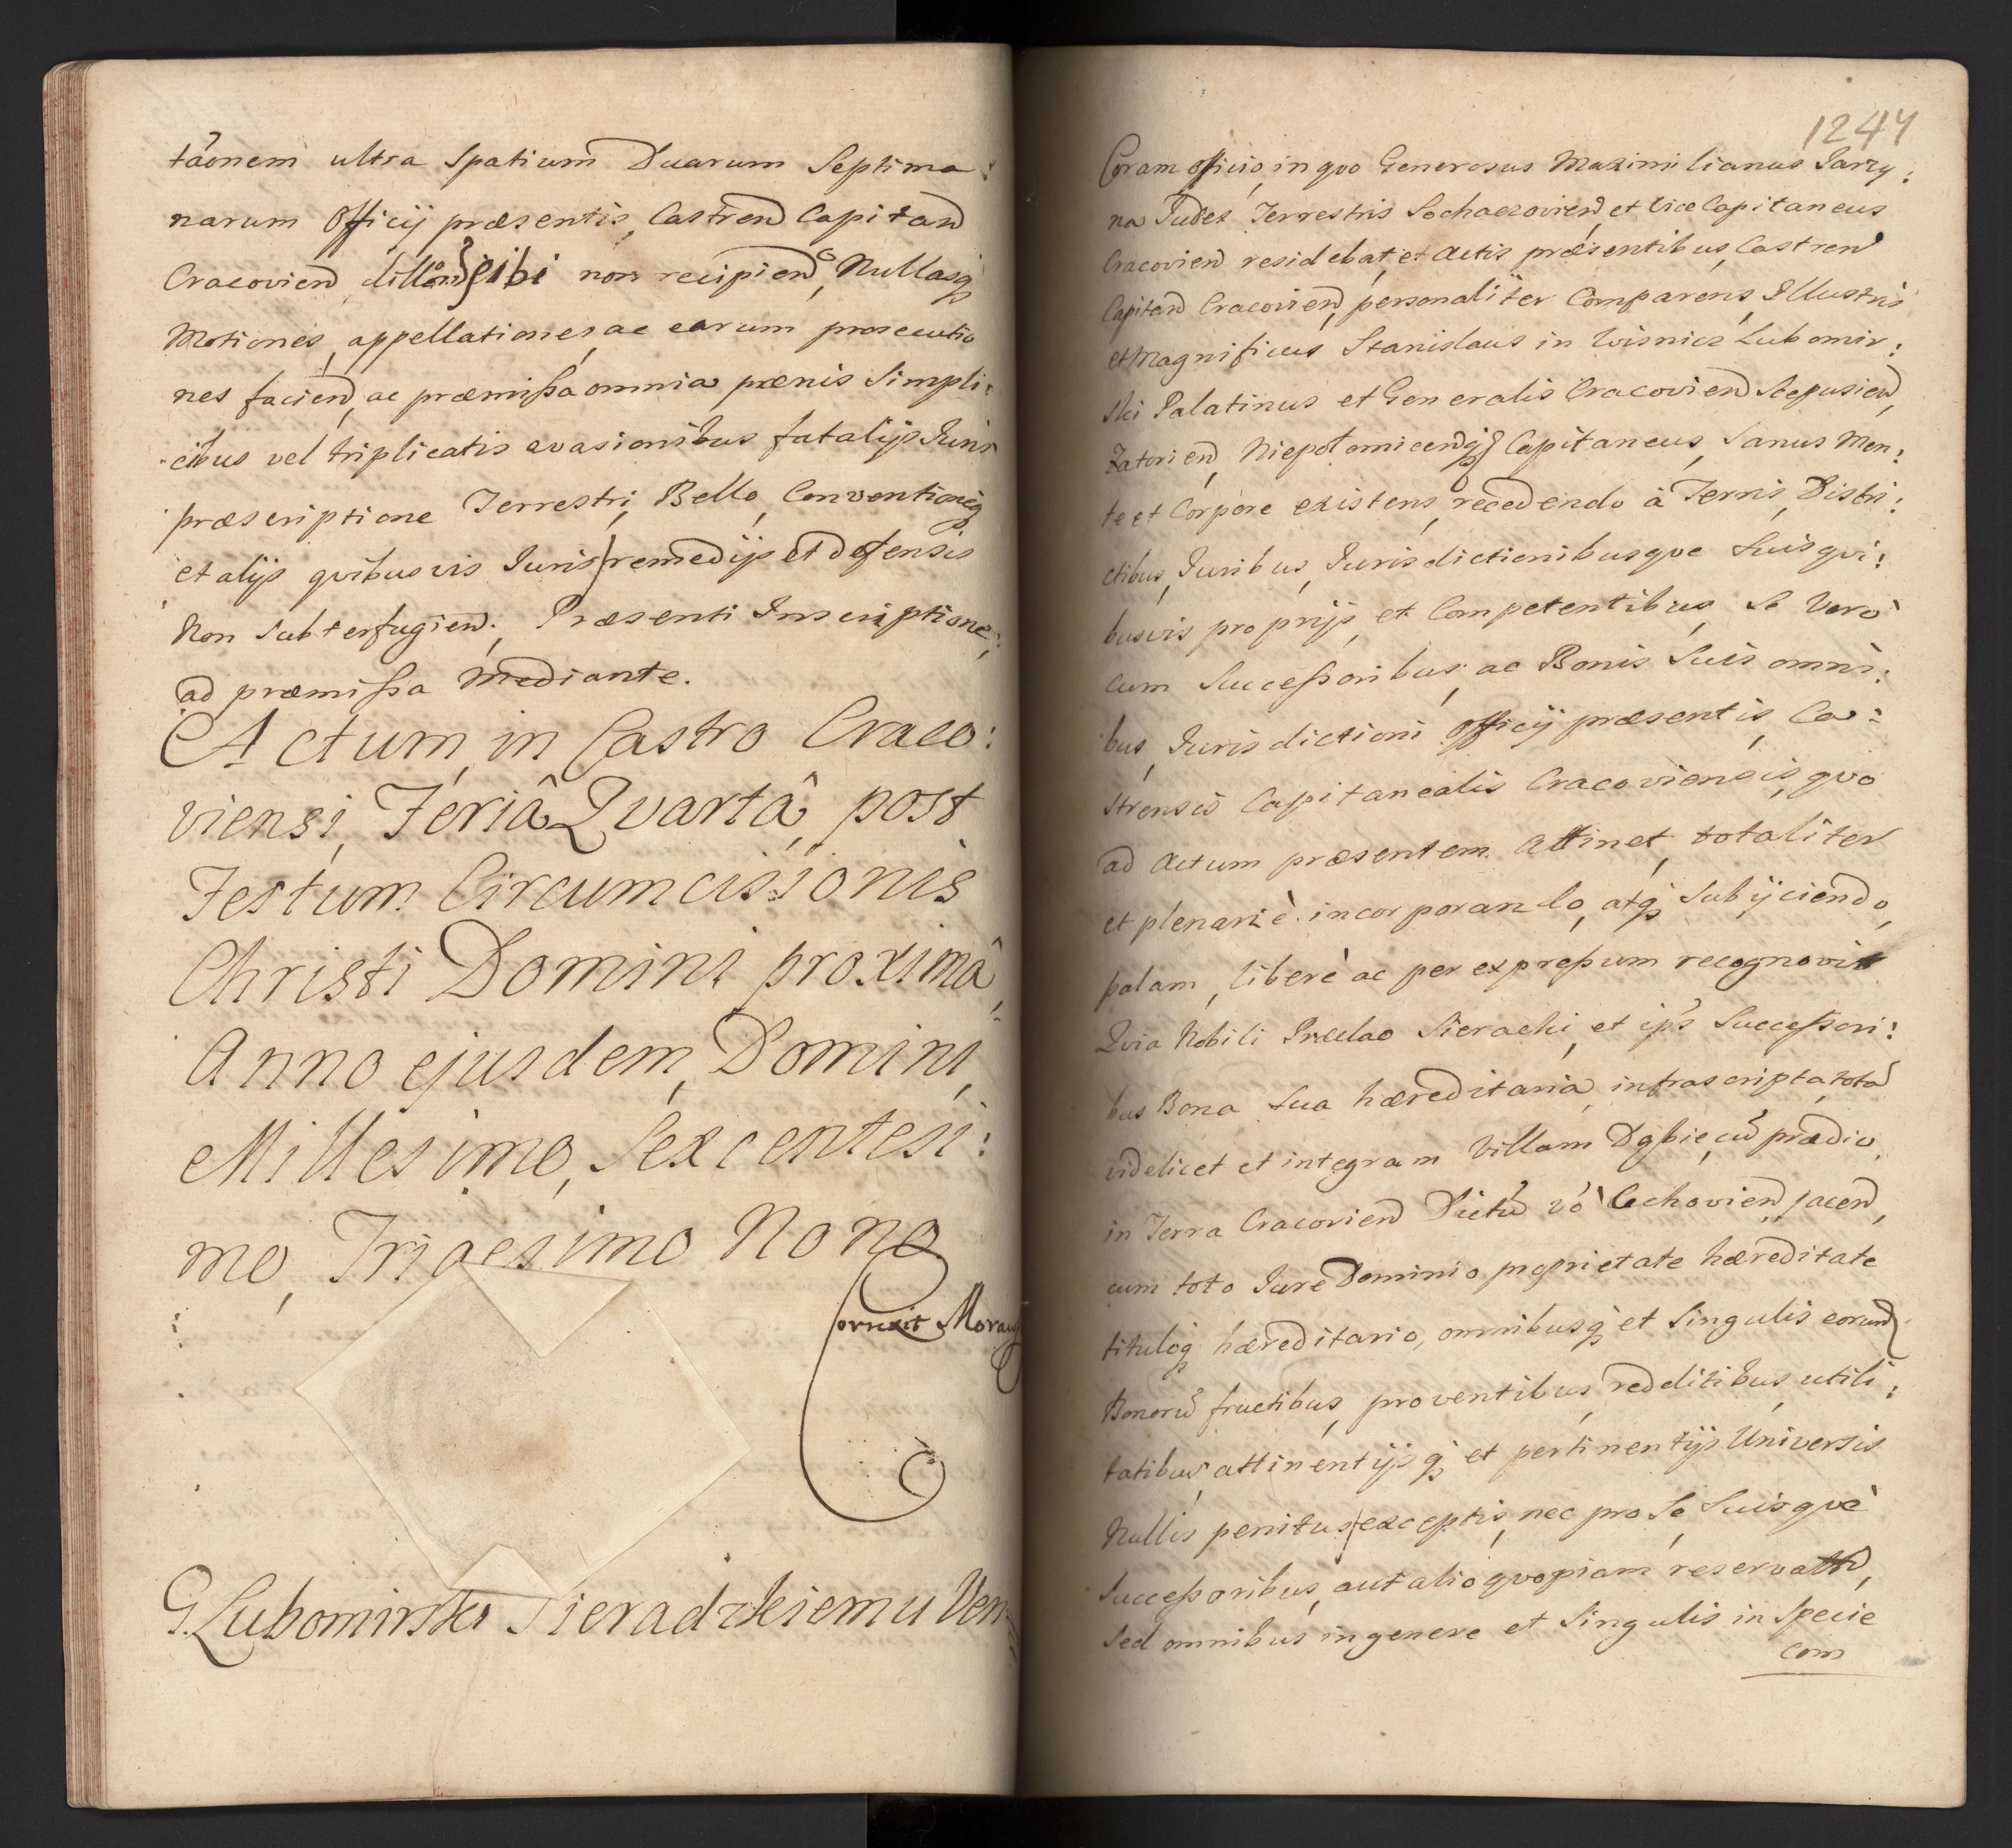 taônem ultra Spatium Duarum Septima:
narum Officij præsentis, Castren Capitan
Cracovien, sibi non recipien, Nullasq
Motiones, appellationes, ac earum prosecutio
nes facien, ac præmißa omnia pænis Simpli:
cibus vel triplicatis evasionibus fatalijs Juris
præscriptione Terrestri, Bello, Conventioneq
et alijs qvibusvis Juris remedijs et defensis
Non Subterfugien. Præsenti Inscriptione,
ad præmißa mediante.
Actum, in Castro Craco:
viensi, Feriâ Qvartâ, post
Festum Circumcisionis
Christi Domini proximâ,
Anno ejusdem, Domini,
Millesimo, Sexcentesi:
mo, Trigesimo Nono
Correxit
G. Lubomirski Sieradzkiemu Ven
1244
Coram officio, in qvo Generosus Maximilianus Jarzy:
na Judex Terrestris Sochaczovien, et Vice Capitaneus
Cracovien residebat, et Actis præsentibus, Castren
Capitan Cracovien, personaliter Comparens, Illustris
et Magnificus Stanislaus in Wisnicz Lubomir:
ski Palatinus et Generalis Cracovien Scepusien,
Zatorien, Niepolomicenq Capitaneus, Sanus Men:
te et Corpore existens, recedendo à Terris, Distri:
ctibus, Juribus, Jurisdictionibusqve Suis qvi:
busvis proprijs, et Competentibus, Se Verò
cum Succeßoribus, ac Bonis Suis omni:
bus, Jurisdictioni Officij præsentis, Ca:
strensis Capitanealis Cracoviensis, qvo
ad Actum præsentem Attinet, totaliter
et plenariè incorporando, atq Subijciendo,
palam, liberè ac per expreßum recognovit
Qvia Nobili Sieracki, et ips Succeßori:
bus Bona Sua hæreditaria, infrascripta, tota
videlicet et integram Villam cu prædio,
in Terra Cracovien Dictu vo Lechovien jacen,
cum toto Jure Dominio proprietate hæreditate
tituloq hæreditario, omnibusq et Singulis eorund
Bonoru fructibus, proventibus, redditibus, utili:
tatibus, attinentijsq et pertinentijs Universis
Nullis penitus exceptis, nec pro Se Suisqvè
Succeßoribus, aut alio qvopiam reservatis,
Sed omnibus in genere et Singulis in Specie
com